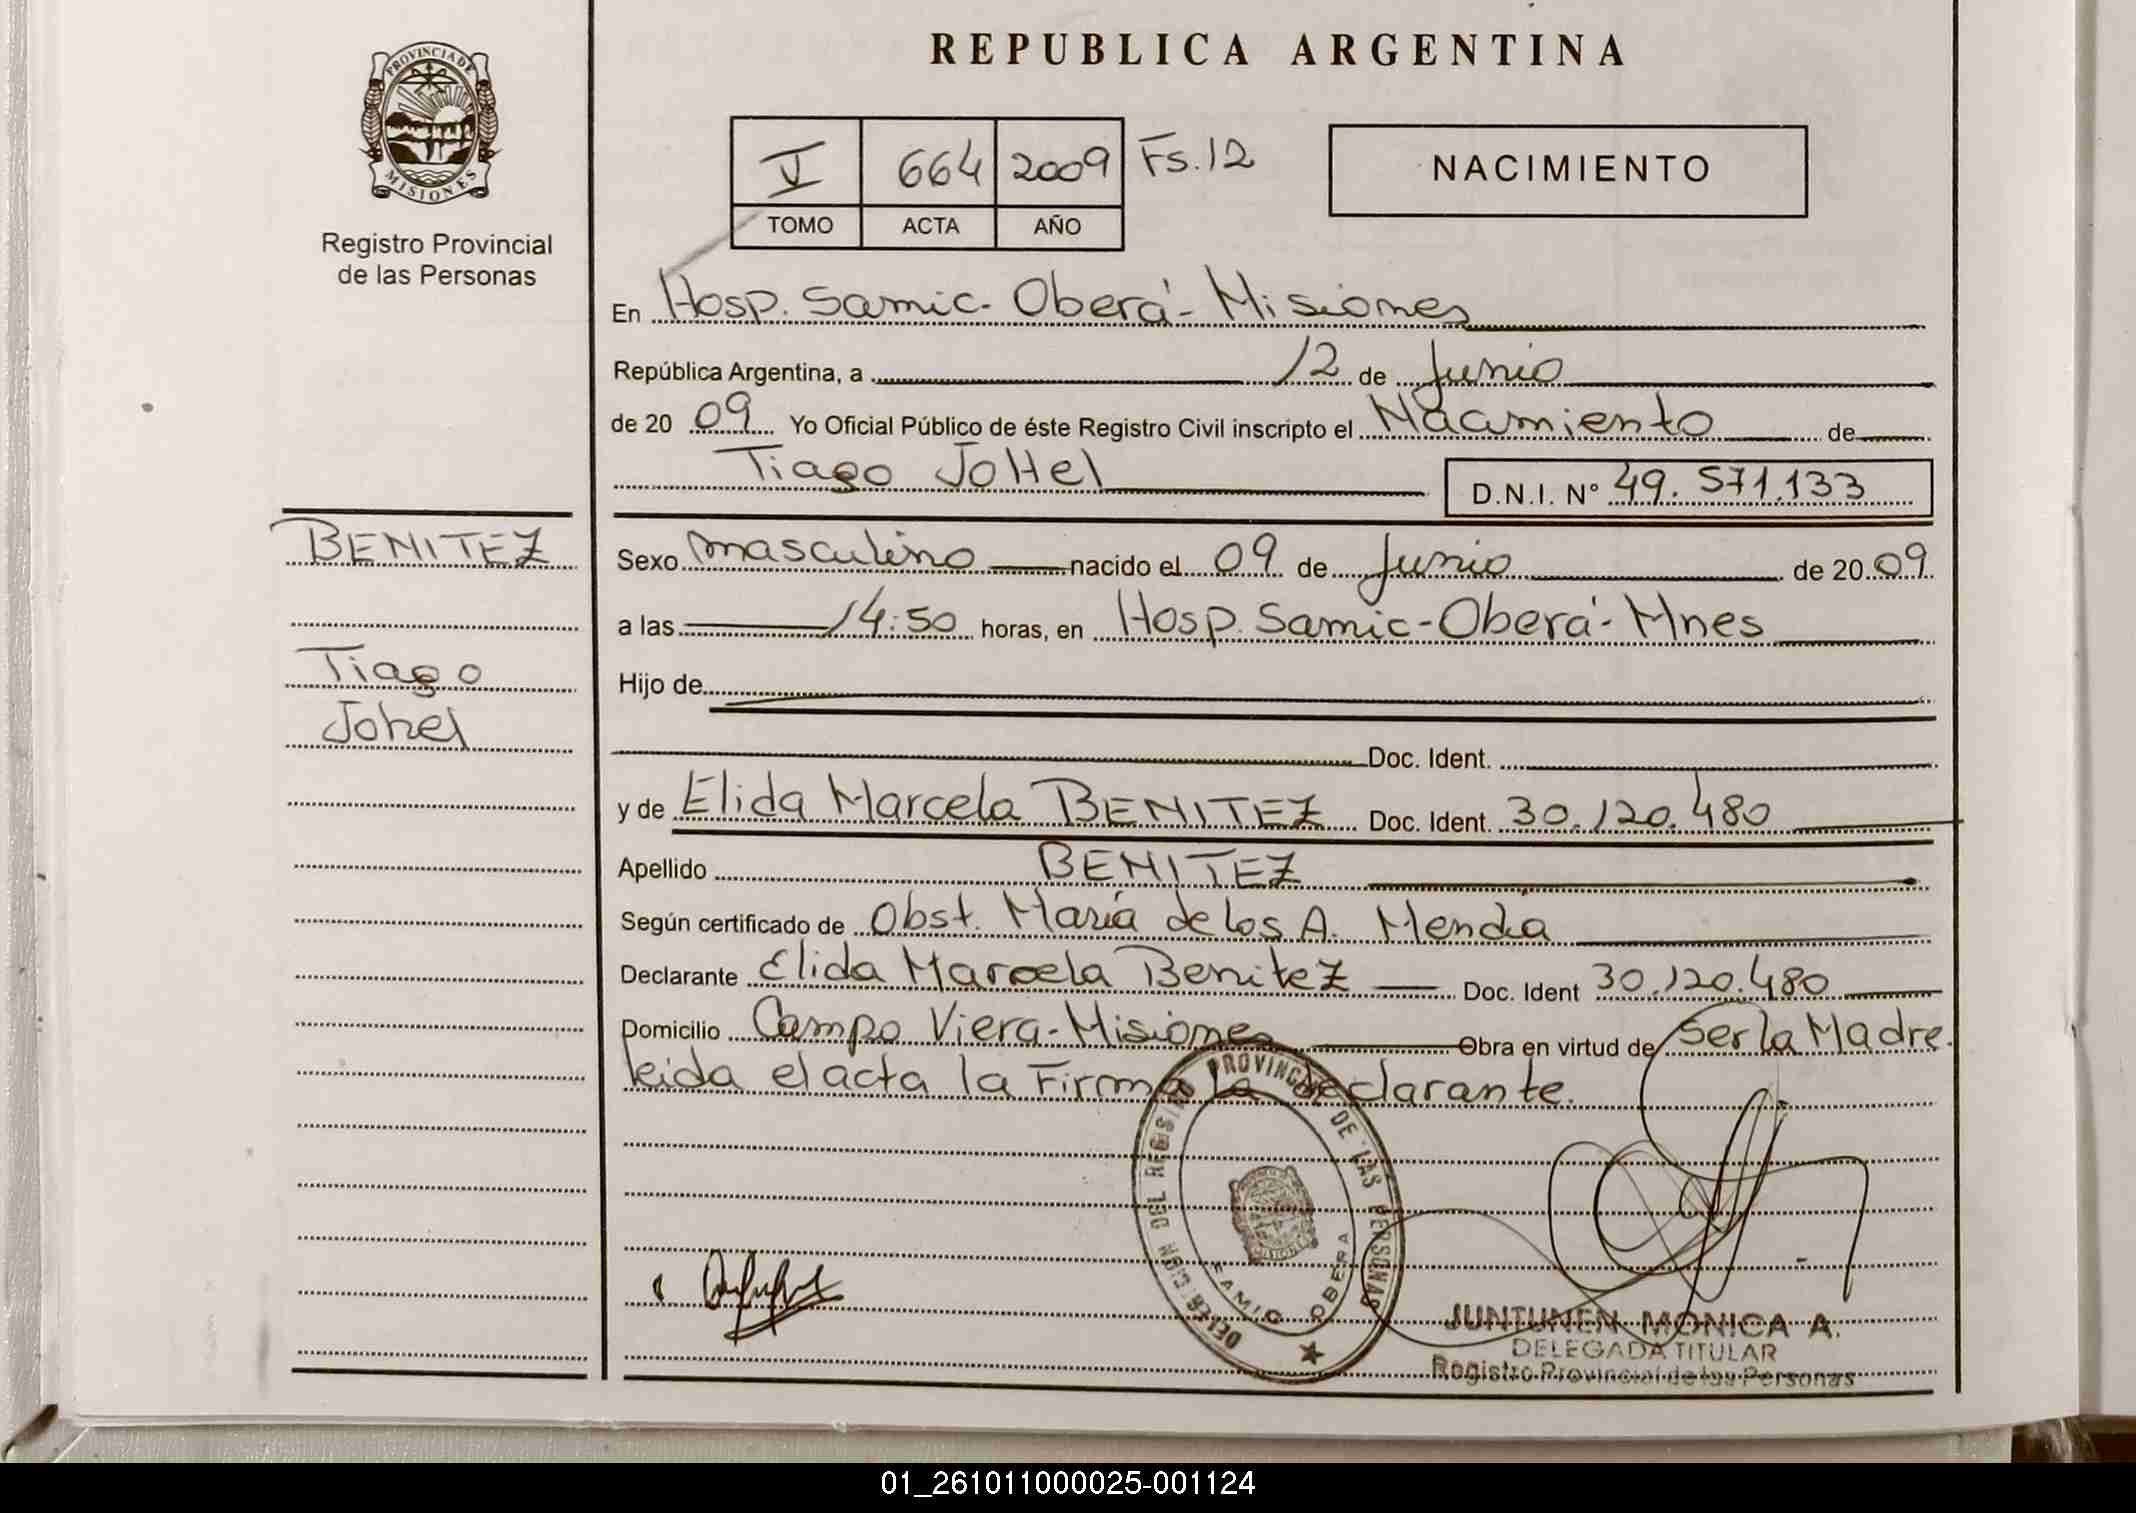 REPUBLICA ARGENTINA
PROVINCIA DE
MISIONES
Registro Provincial
de las Personas
V 664 2009 Fs.12
TOMO ACTA AÑO
NACIMIENTO
En Hosp. Samic- Oberá- Misiones
República Argentina, a 12 de Junio
de 20 09 Yo Oficial Público de éste Registro Civil inscripto el Nacimiento de
Tiago JoHel
D.N.I. N° 49.571.133
BENITEZ
Tiago
Johel
Sexo masculino nacido el 09 de Junio de 20 09
a las 14:50 horas, en Hosp. Samic-Oberá-Mnes
Hijo de
Doc. Ident.
y de Elida Marcela BENITEZ Doc. Ident. 30.120.480
Apellido BENITEZ
Según certificado de Obst. María de los A. Mendia
Declarante Elida Marcela Benitez Doc. Ident 30.120.480
Domicilio Campo Viera-Misiones Obra en virtud de ser la Madre.
leida el acta la Firma la declarante.
DELEGACION DEL REGISTRO PROVINCIAL DE LAS PERSONAS
MISIONES
SAMIC OBERA
JUNTUNEN MONICA A.
DELEGADA TITULAR
Registro Provincial de las Personas
01_261011000025-001124